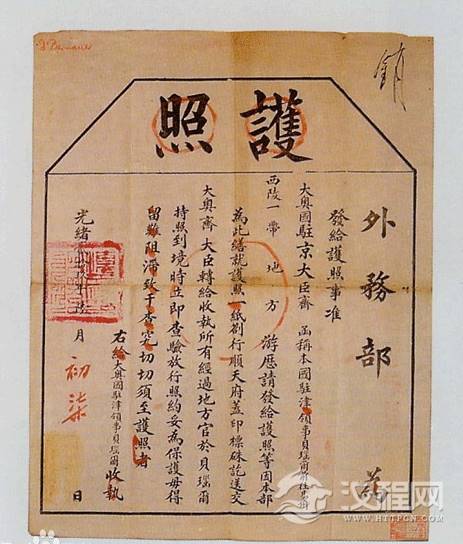 護照
外務部 為
發給護照事准
大奧國駐京大臣齊 函稱本國駐津領事貝瑙爾
西陵一帶地方 游歷請發給護照等因本部
為此繕就護照一紙劄行順天府蓋印標硃訖送交
大奧齊大臣轉給收執所有經過地方官於貝瑙爾
持照到境時立即查驗放行照約妥為保護毋得
留難阻滯致干查究切切須至護照者
右給大奧國駐津領事貝瑙爾收執
光緒 年 月 初柒 日
銷
汉程网
HTTPCN.COM